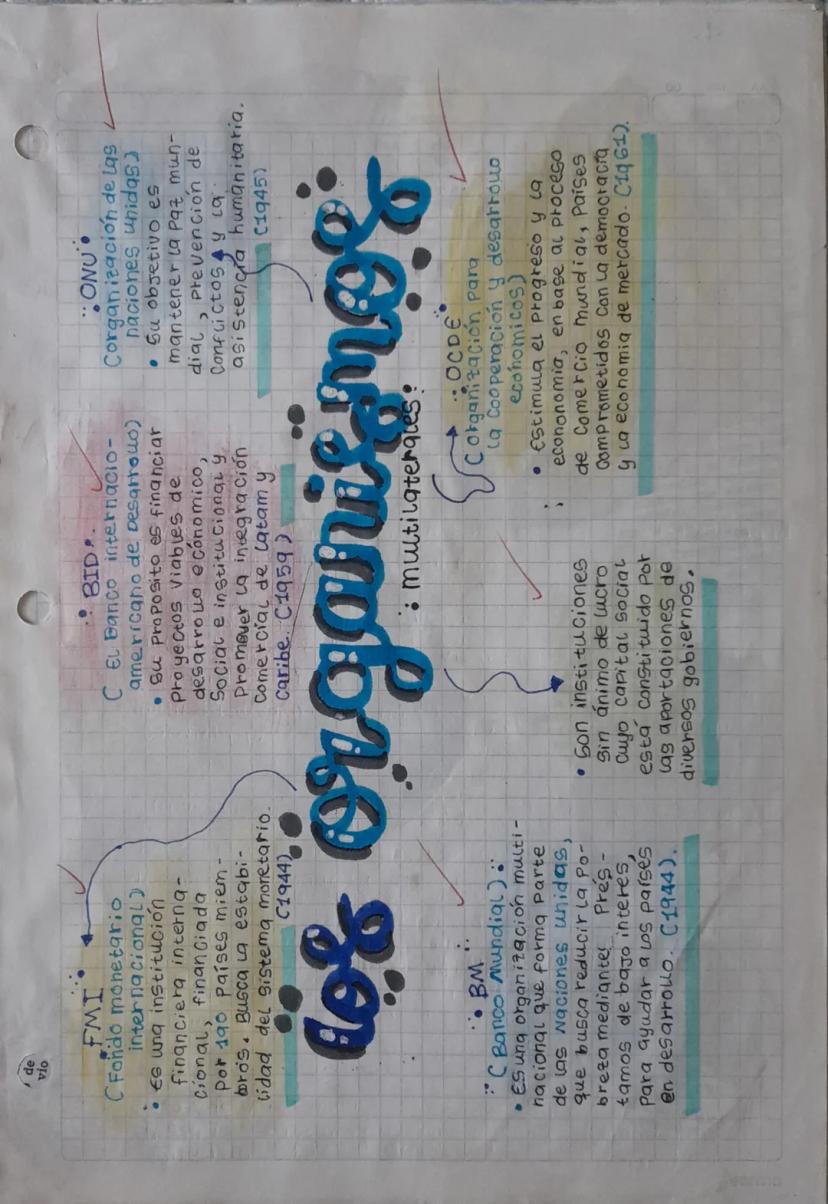 los organismos
multilaterales:
FMI
(Fondo monetario
internacional)
• Es una institución
financiera interna-
cional, financiada
por 190 países miem-
bros. Busca la estabi-
lidad del sistema monetario.
(1944)
BID
( El Banco internacio-
americano de Desarrollo)
• Su proposito es financiar
proyectos viables de
desarrollo económico,
Social e institucional y
promover la integración
comercial de Latam y
caribe. (1959)
ONU
(organización de las
naciones unidas)
• Su objetivo es
mantener la paz mun-
dial, prevención de
conflictos y la
asistencia humanitaria.
(1945)
BM
(Banco Mundial)
• Es una organización multi-
nacional que forma parte
de las Naciones unidas,
que busca reducir la po-
breza mediante Prés-
tamos de bajo interés,
para ayudar a los países
en desarrollo. (1944).
• Son instituciones
sin ánimo de lucro
cuyo capital social
está constituido por
las aportaciones de
diversos gobiernos.
OCDE
(organización para
la cooperación y desarrollo
económicos)
• Estimula el progreso y la
economía, en base al proceso
de comercio mundial, países
comprometidos con la democracia
y la economía de mercado. (1961).
de
vio